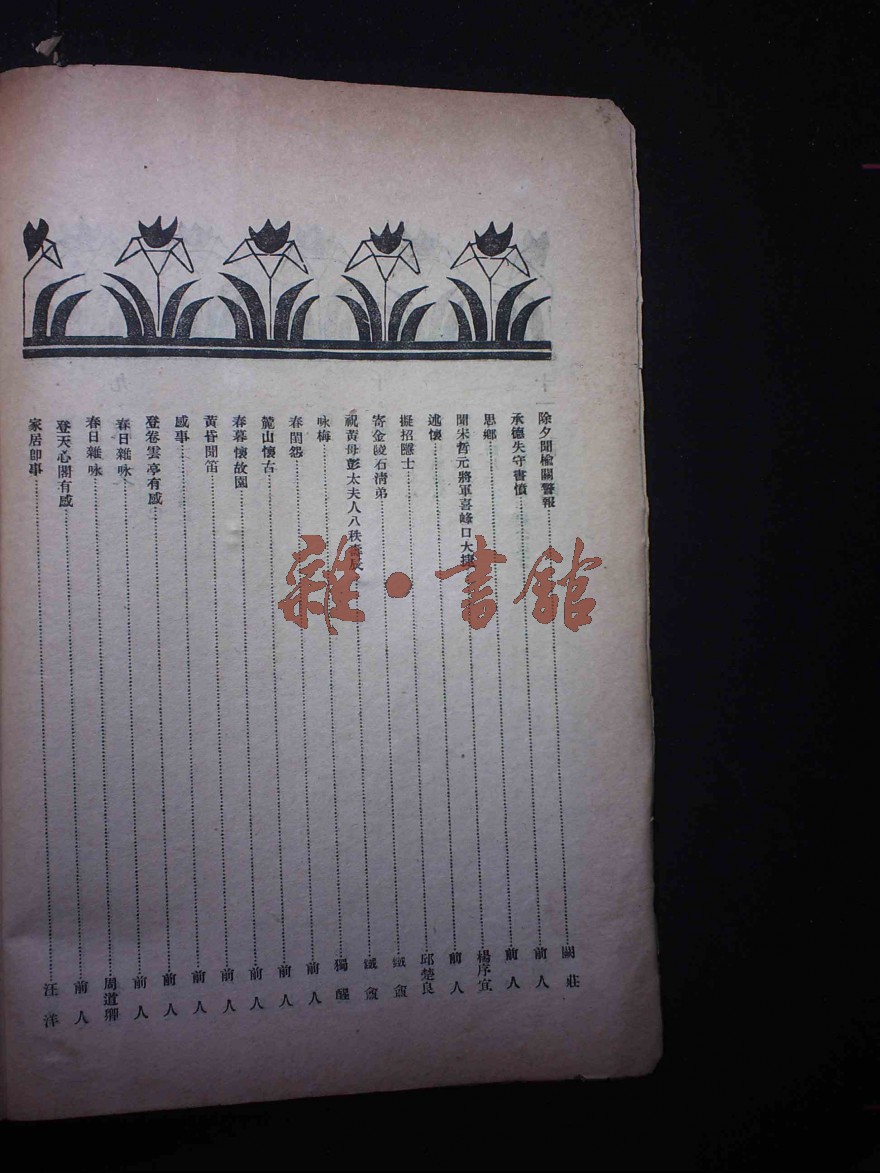 除夕聞榆關警報………關莊
承德失守書憤………前人
思鄉………前人
聞宋哲元將軍喜峰口大捷………楊序宜
述懷………前人
擬招隱士………邱楚良
寄金陵石清弟………鐵盦
祝黃母彭太夫人八秩壽辰………鐵盦
咏梅………獨醒
春閨怨………前人
麓山懷古………前人
春暮懷故園………前人
黃昏聞笛………前人
感事………前人
登卷雲亭有感………前人
春日雜咏………前人
春日雜咏………周道
登天心閣有感………前人
家居卽事………汪洋
雜·書館